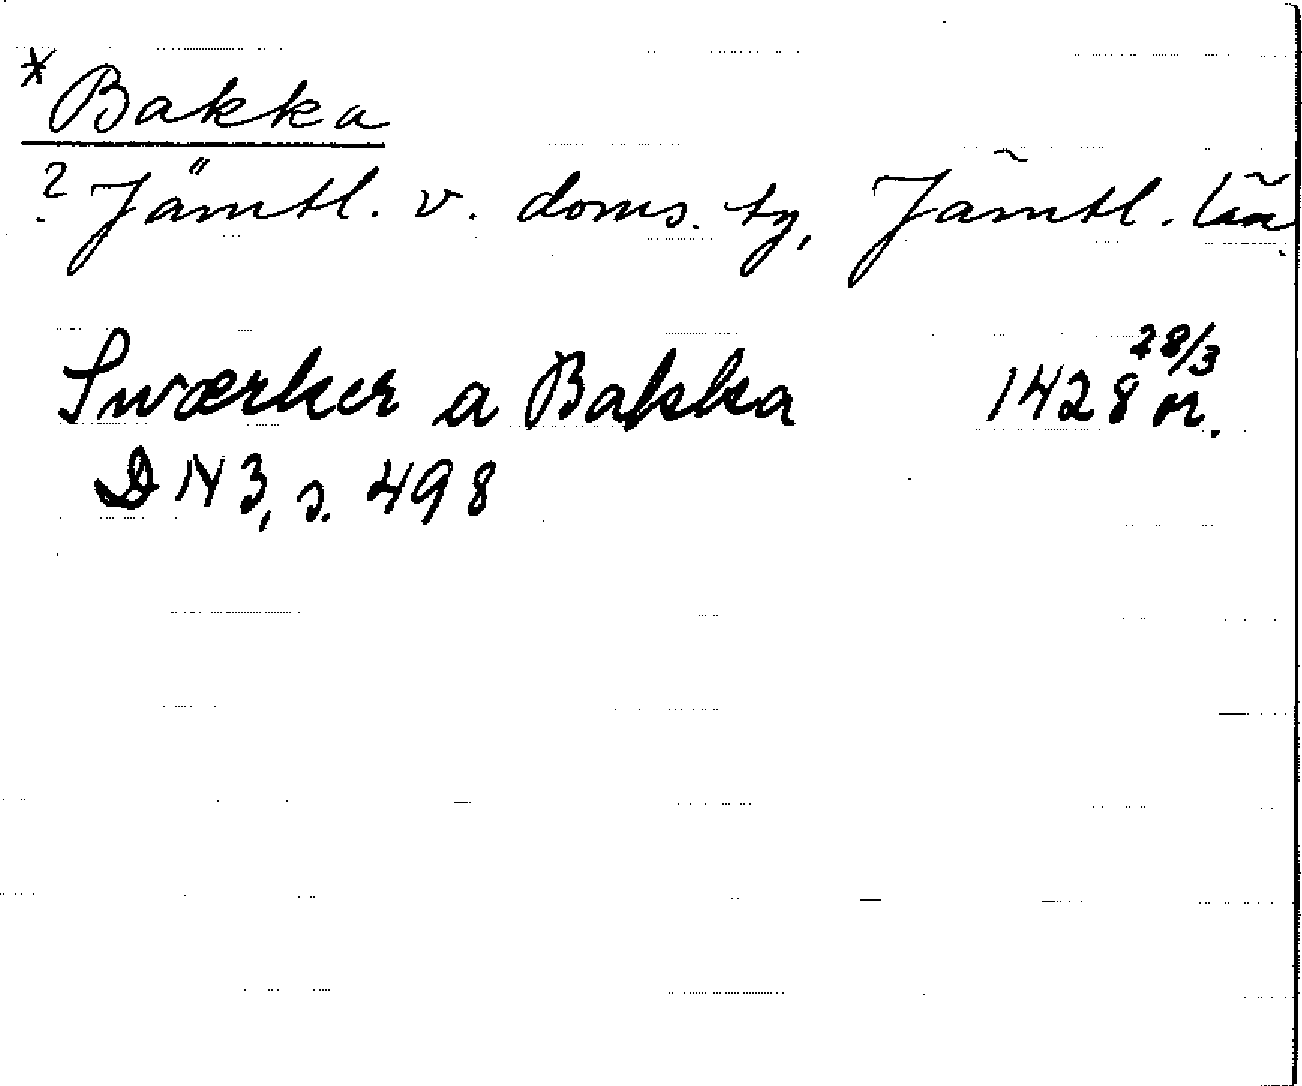 * Bakka
? Jämtl. v. doms. tg, Jämtl. län
Swærker a Bakka 1428 28/3 or.
DN 3, s. 498